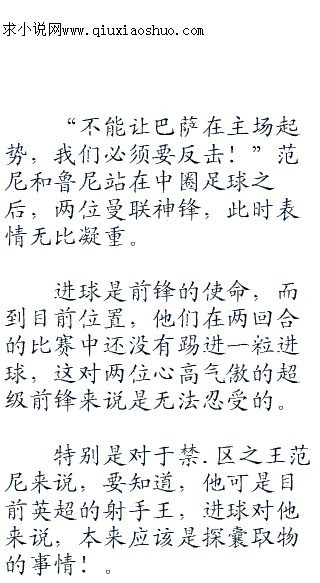 求小说网www.qiuxiaoshuo.com
“不能让巴萨在主场起
势，我们必须要反击！”范
尼和鲁尼站在中圈足球之
后，两位曼联神锋，此时表
情无比凝重。
进球是前锋的使命，而
到目前位置，他们在两回合
的比赛中还没有踢进一粒进
球，这对两位心高气傲的超
级前锋来说是无法忍受的。
特别是对于禁.区之王范
尼来说，要知道，他可是目
前英超的射手王，进球对他
来说，本来应该是探囊取物
的事情！。